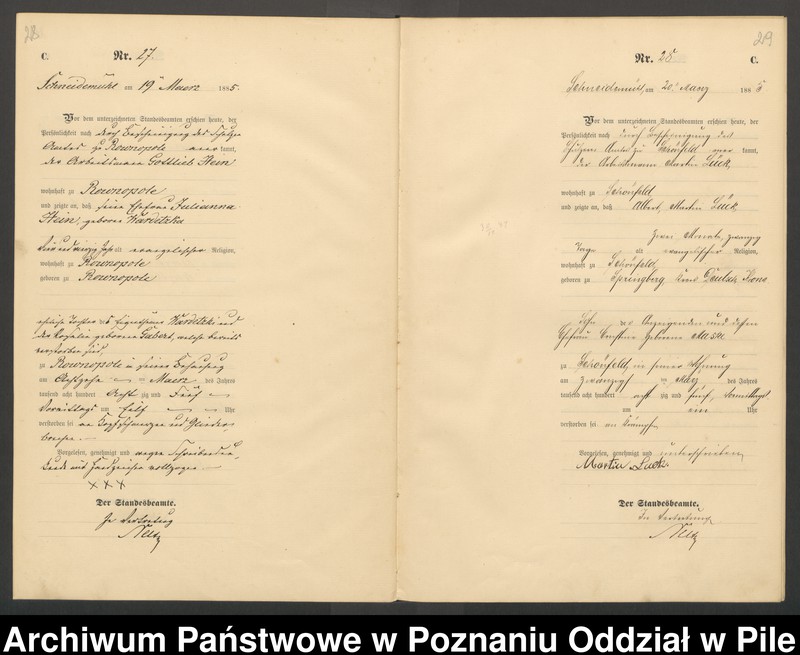 28
C. Nr. 27.
Schneidemühl am 19ten Maerz 1885.
Vor dem unterzeichneten Standesbeamten erschien heute, der
Persönlichkeit nach durch Bescheinigung des Schulzen
Amtes zu Rownopole aner kannt,
der Arbeitsmann Gottlieb Hein
wohnhaft zu Rownopole
und zeigte an, daß seine Ehefrau Julianna
Hein, geborne Warditzka
alt evangelischer Religion,
wohnhaft zu Rownopole
geboren zu Rownopole
eheliche Tochter des Eigenthümers Warditzki und
der Rosalie geborenen Gabert, welche bereits
verstorben sind,
zu Rownopole in seiner Behausung
am Achtzehn Maerz des Jahres
tausend acht hundert Acht zig und Fünf
Vormittags um Eilf Uhr
verstorben sei an Kopfschmerzen und Glieder-
Vorgelesen, genehmigt und wegen Schreibens
mit Handzeichen vollzogen
× × ×
Der Standesbeamte.
In Vertretung
29
Nr. 28 C.
Schneidemühl am 20ten Maerz 1885
Vor dem unterzeichneten Standesbeamten erschien heute, der
Persönlichkeit nach durch Bescheinigung des
Schulzen Amts zu Schönfeld aner kannt,
der Arbeitsmann Martin Lück
wohnhaft zu Schönfeld
und zeigte an, daß Albert, Martin Lück,
zwei Monate, zwanzig
Tage alt evangelischer Religion,
wohnhaft zu Schönfeld,
geboren zu Springberg Kreis Deutsch Krone
Sohn des Anzeigenden und dessen
Ehefrau Ernstine geborene
zu Schönfeld, in seiner Wohnung
am zwanzigsten März des Jahres
tausend acht hundert acht zig und fünf, Vormittags
um ein Uhr
verstorben sei an Krämpfe
Vorgelesen, genehmigt und unterschrieben
Martin Lück.
Der Standesbeamte.
In Vertretung
Archiwum Państwowe w Poznaniu Oddział w Pile